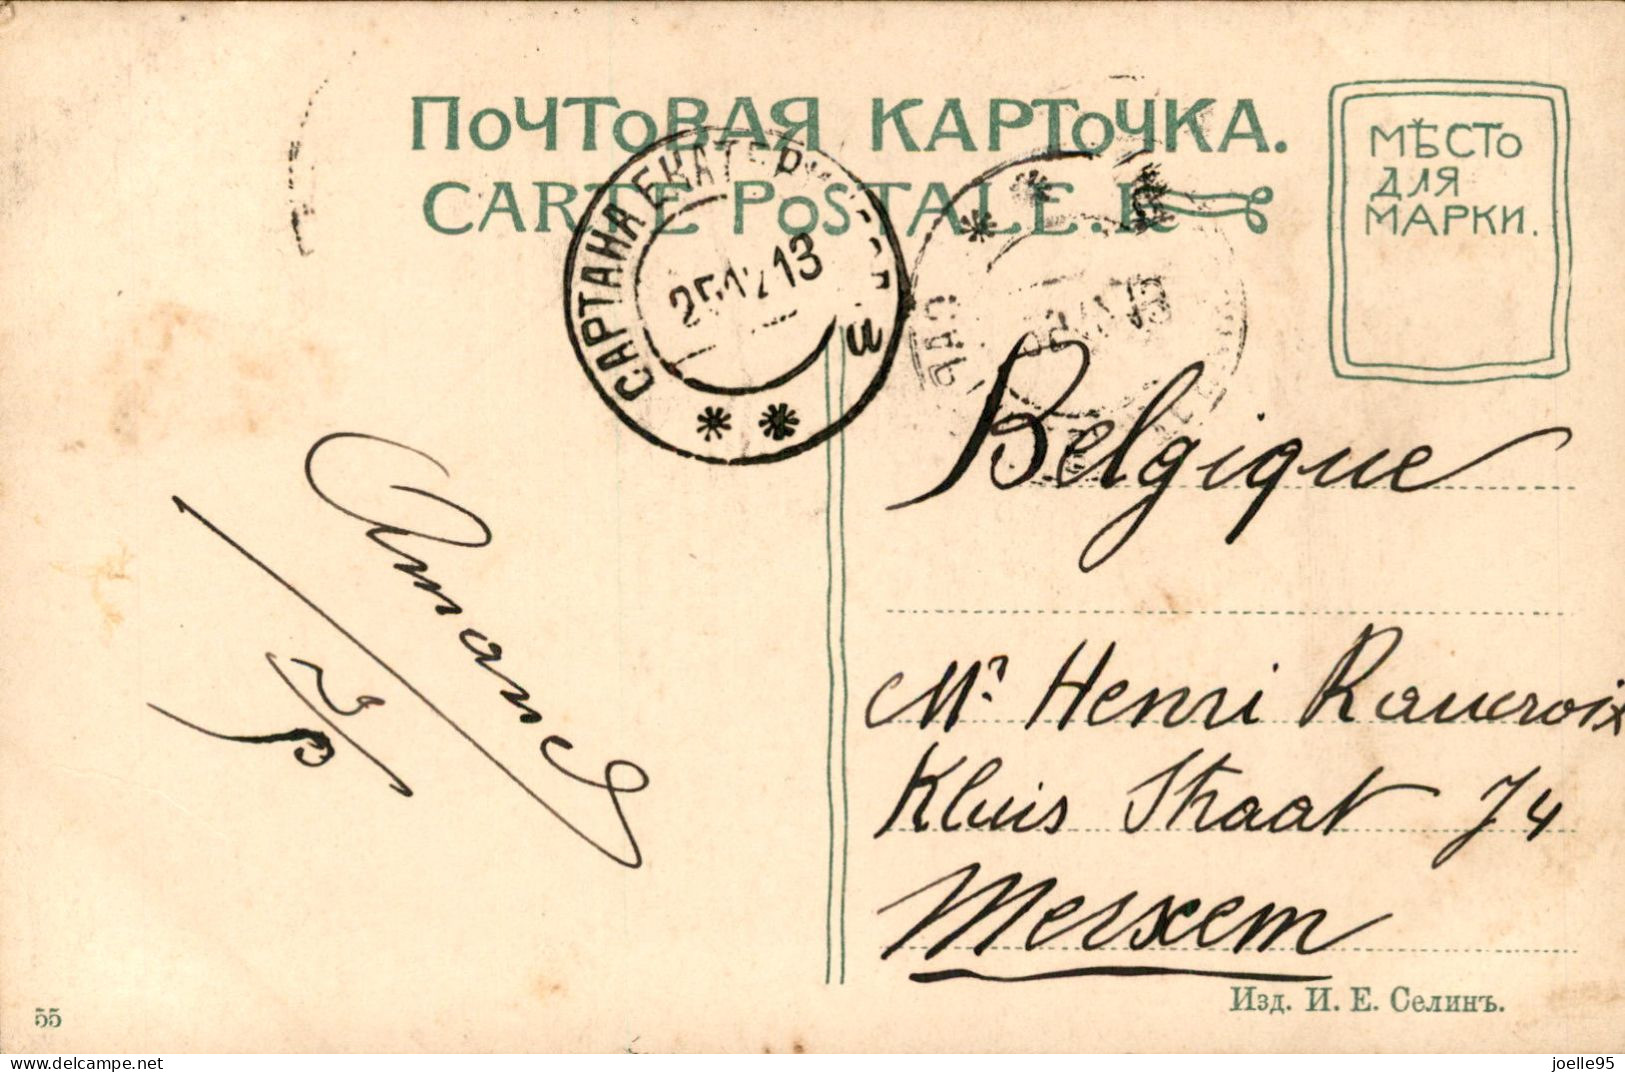 ПОЧТОВАЯ КАРТОЧКА.
CARTE POSTALE.
МѢСТО
ДЛЯ
МАРКИ.
САРТАНА ЕКАТЕР
25 12 13
САР
Belgique
Mr Henri Raucroix
Kluis Straat 74
Merxem
Изд. И. Е. Селинъ.
55
https://www.delcampe.net
joelle95